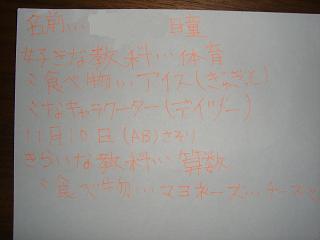 名前… 瞳
好きな教科… 体育
〃食べ物… アイス(ぎゅぎっと)
〃なキャラクーター(デイジー)
11月10日(AB)さそり
きらいな教科… 算数
〃食べ物… マヨネーズ… チーズ